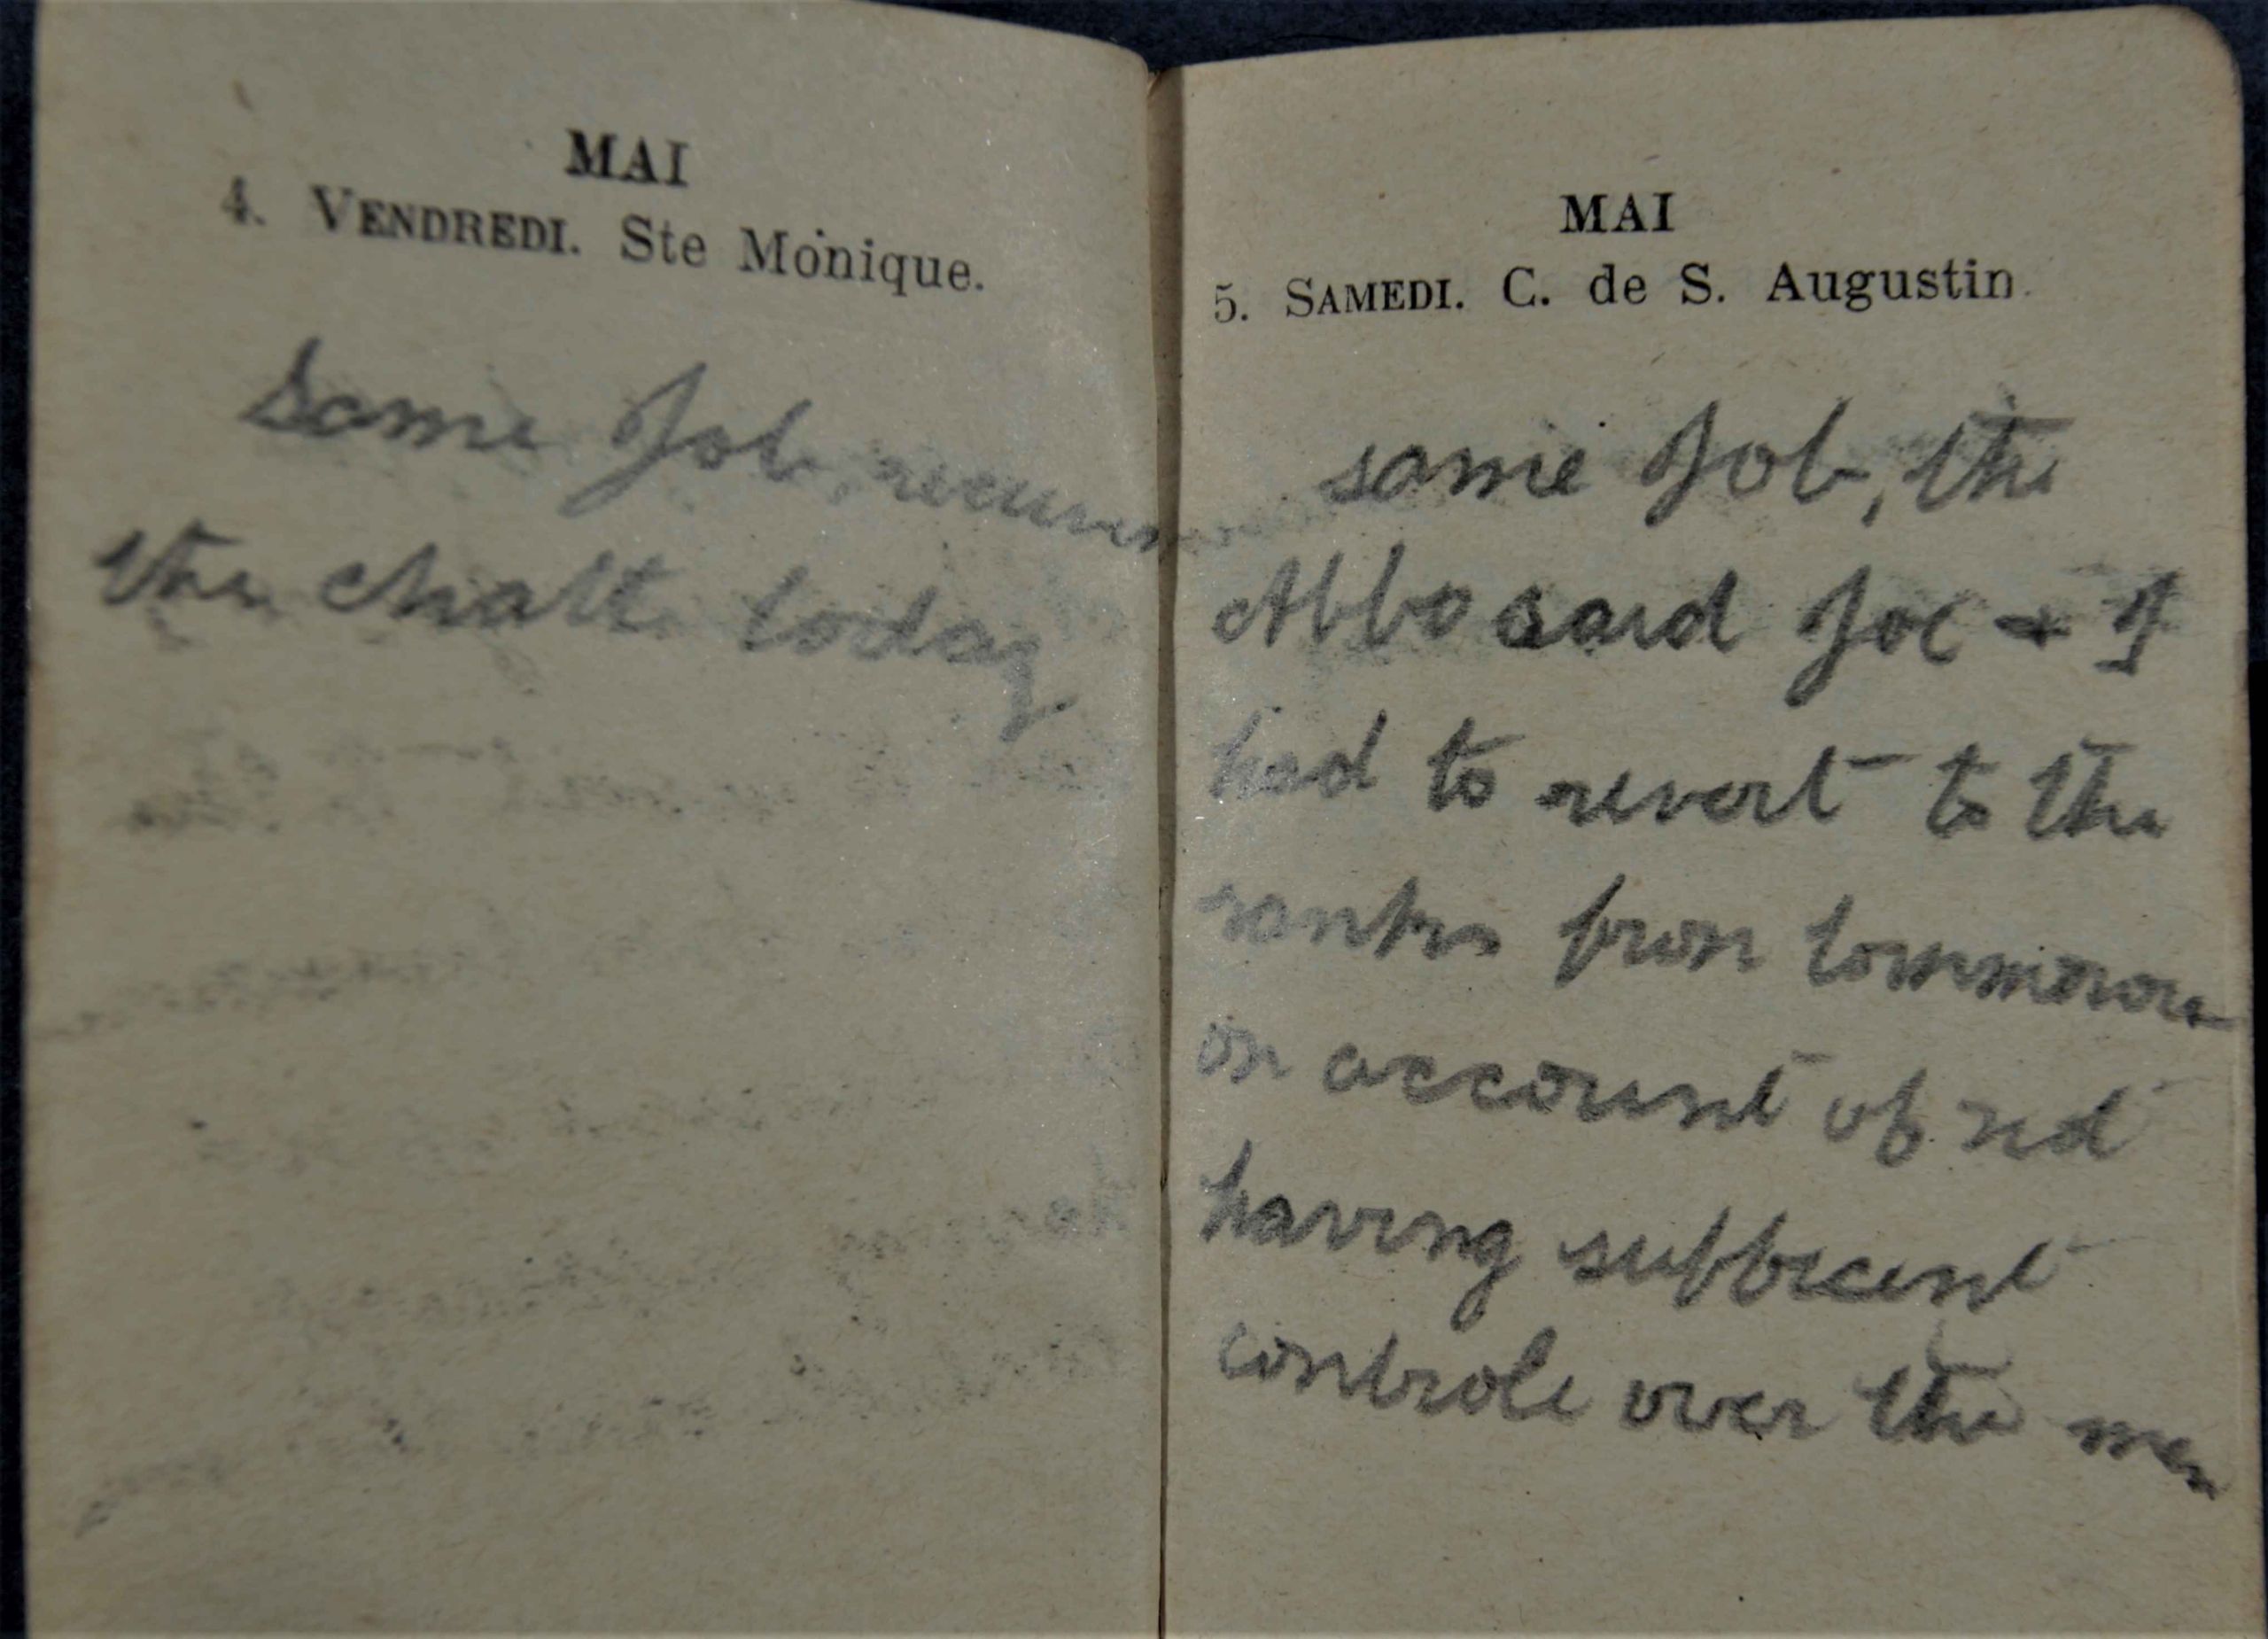 MAI
4. VENDREDI. Ste Monique.
Same Job,
the chalk today
MAI
5. SAMEDI. C. de S. Augustin.
same Job, the
said Joe + I
had to revert to the
ranks from tommorow
on account of not
having sufficent
controle over the men